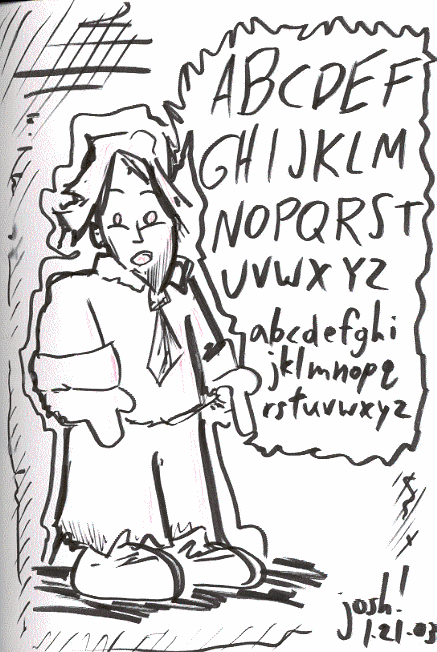 ABCDEF
GHIJKLM
NOPQRST
UVWXYZ
abcdefghi
jklmnopq
rstuvwxyz
josh!
1.21.03